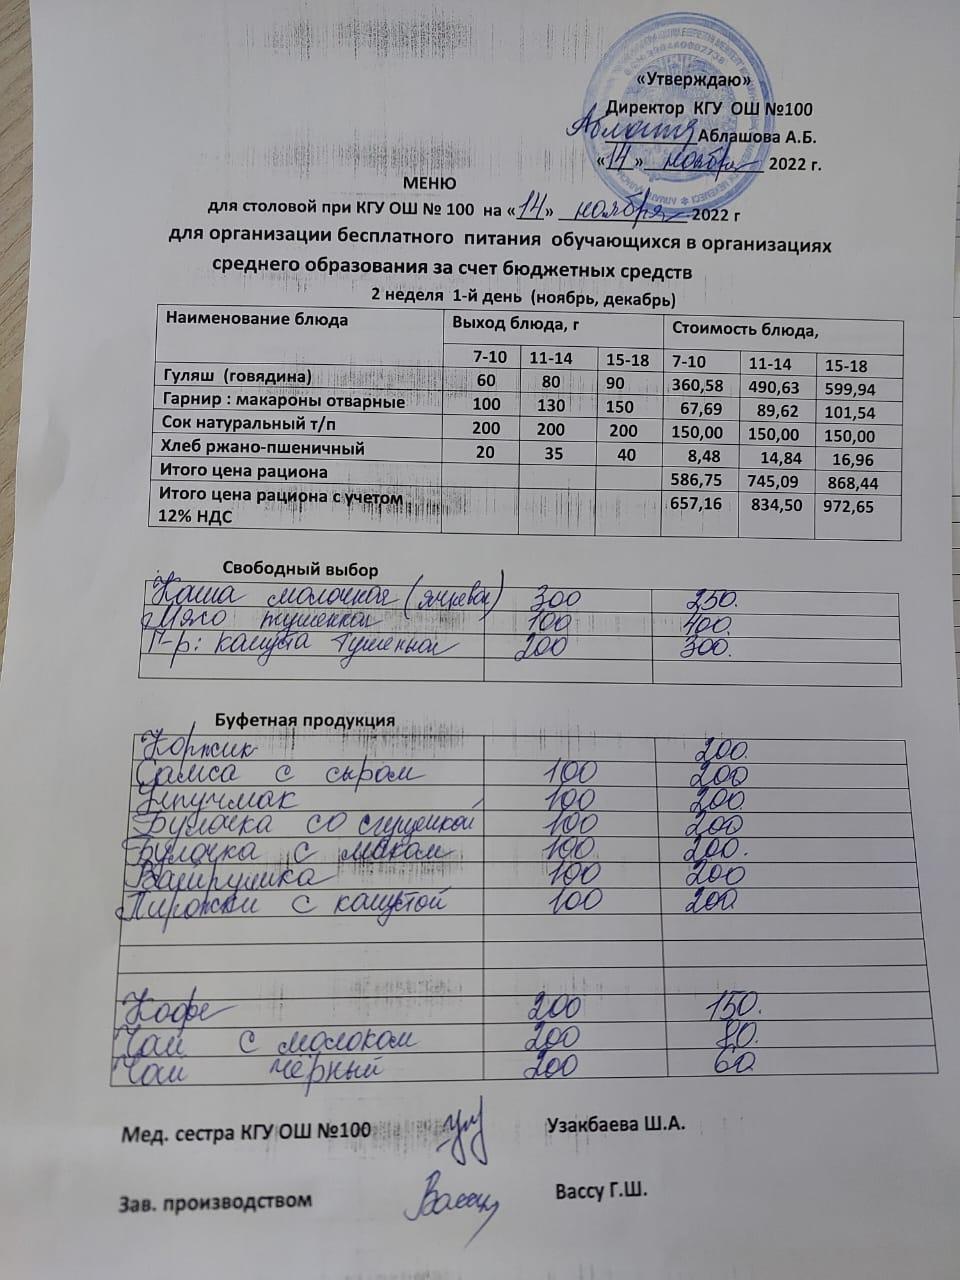 «Утверждаю»
Директор КГУ ОШ №100
Аблашова А.Б.
«14» ноября 2022 г.
МЕНЮ
для столовой при КГУ ОШ № 100 на «14» ноября 2022 г
для организации бесплатного питания обучающихся в организациях
среднего образования за счет бюджетных средств
2 неделя 1-й день (ноябрь, декабрь)
Наименование блюда Выход блюда, г Стоимость блюда,
7-10 11-14 15-18 7-10 11-14 15-18
Гуляш (говядина) 60 80 90 360,58 490,63 599,94
Гарнир : макароны отварные 100 130 150 67,69 89,62 101,54
Сок натуральный т/п 200 200 200 150,00 150,00 150,00
Хлеб ржано-пшеничный 20 35 40 8,48 14,84 16,96
Итого цена рациона 586,75 745,09 868,44
Итого цена рациона с учетом 657,16 834,50 972,65
12% НДС
Свободный выбор
Каша молочная (ячневая) 300 250.
Мясо тушенное 100 400.
Г-р: капуста тушеная 200 300.
Буфетная продукция
Коржик 200.
Самса с сыром 100 200
Эпучмак 100 200
Булочка со сгущенкой 100 200
Булочка с маком 100 200.
Ватрушка 100 200
Пирожки с капустой 100 200
Кофе 200 150.
Чай с молоком 200 80.
Чай черный 200 60
Мед. сестра КГУ ОШ №100 Узакбаева Ш.А.
Зав. производством Вассу Г.Ш.